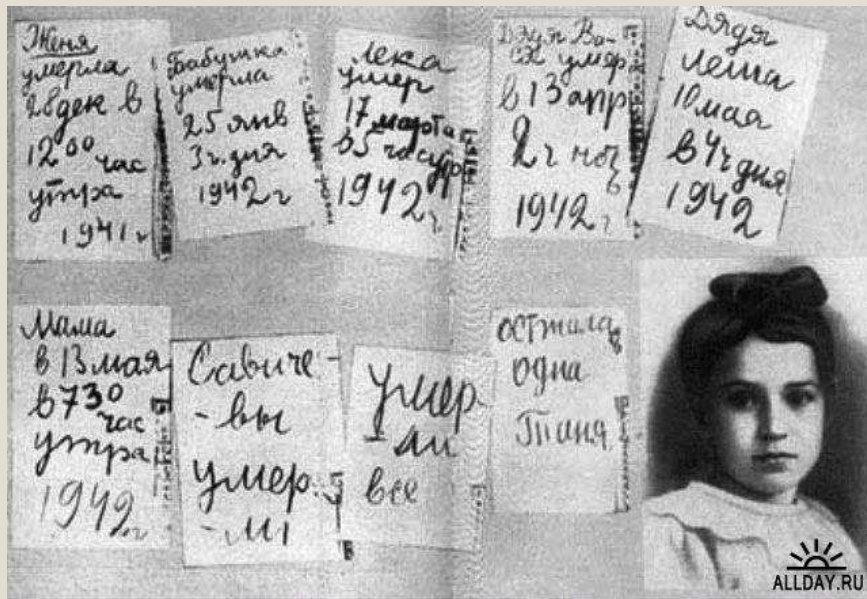 Женя
умерла
28 дек в
12 00 час
утра
1941 г
Бабушка
умерла
25 янв
3 ч. дня
1942 г
Лека
умер
17 марта
в 5 час утр
1942 г
Дядя Ва-
ся умер
в 13 апр
2 ч ноч
1942 г
Дядя
Леша
10 мая
в 4 ч дня
1942
Мама
в 13 мая
в 7 30
час
утра
1942 г
Савиче-
-вы
умер
-ли
умер
-ли
все
осталась
одна
Таня
ALLDAY.RU